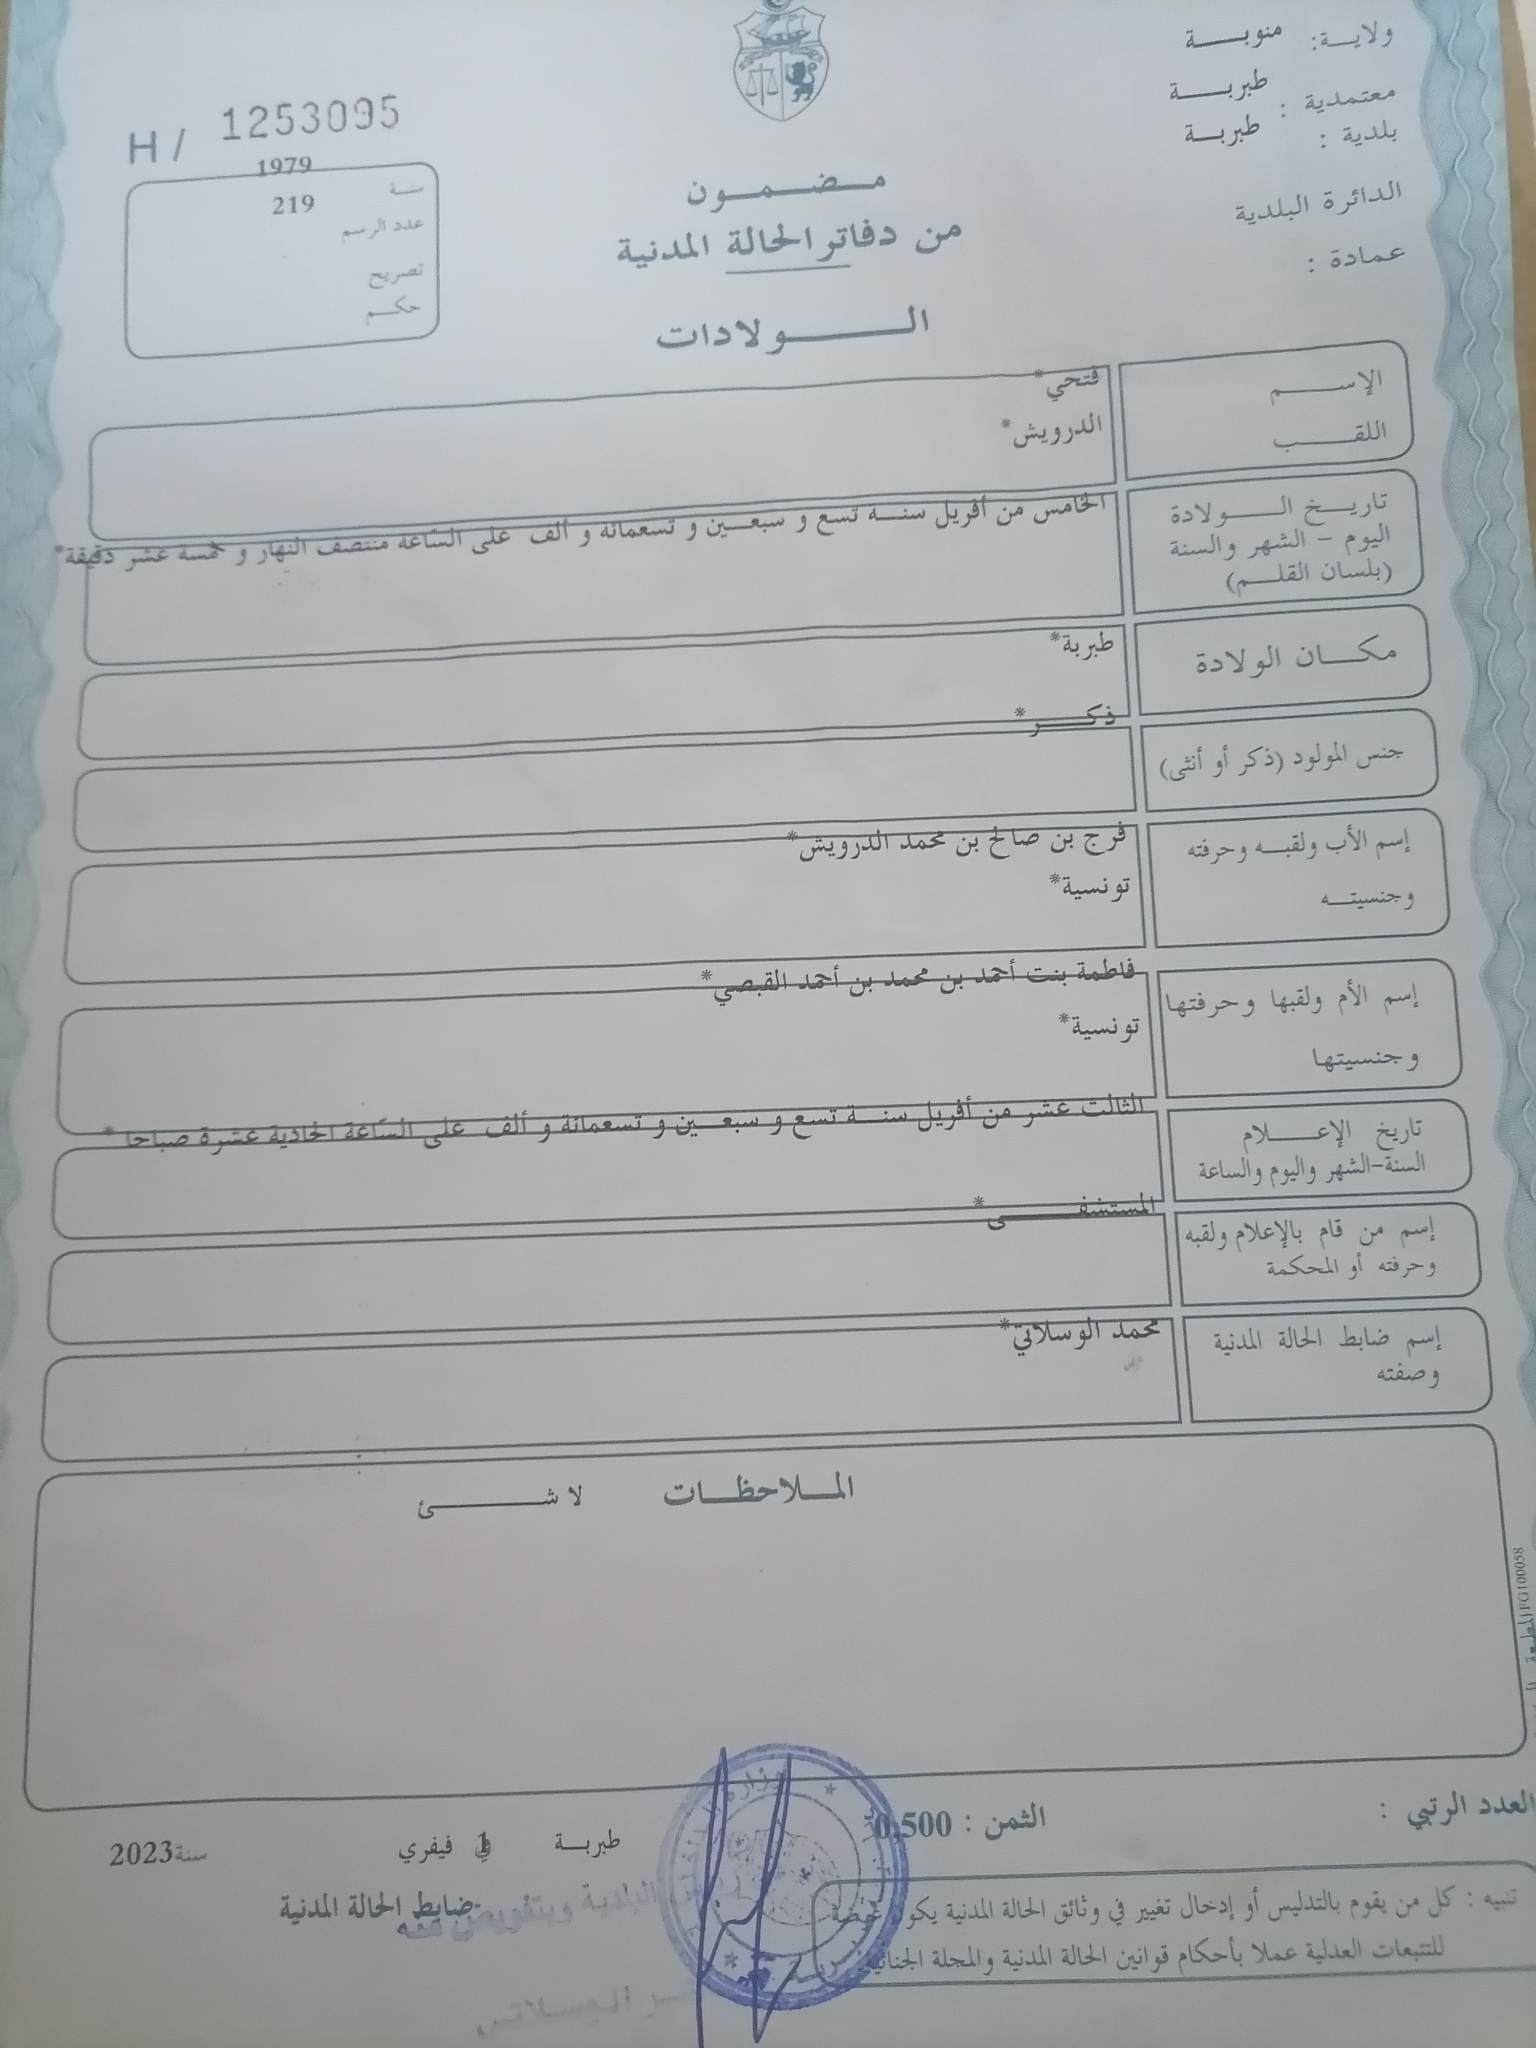 ولاية: منوبة
معتمدية : طبربة
بلدية : طبربة
الدائرة البلدية
عمادة :
H / 1253095
سنة 1979
عدد الرسم 219
تصريح
حكم
مضمون
من دفاتر الحالة المدنية
الولادات
الإسم فتحي*
اللقب الدرويش*
تاريخ الولادة
اليوم - الشهر والسنة
(بلسان القلم)
الخامس من أفريل سنة تسع و سبعين و تسعمائة و ألف على الساعة منتصف النهار و خمسة عشر دقيقة*
مكان الولادة طبربة*
جنس المولود (ذكر أو أنثى) ذكر*
إسم الأب ولقبه وحرفته فرج بن صالح بن محمد الدرويش*
وجنسيته تونسية*
إسم الأم ولقبها وحرفتها فاطمة بنت أحمد بن محمد بن أحمد القبصي*
وجنسيتها تونسية*
تاريخ الإعلام
السنة-الشهر واليوم والساعة
الثالث عشر من أفريل سنة تسع و سبعين و تسعمائة و ألف على الساعة الحادية عشرة صباحا *
إسم من قام بالإعلام ولقبه
وحرفته أو المحكمة
المستشفى*
إسم ضابط الحالة المدنية
وصفته
محمد الوسلاتي*
الملاحظات لا شئ
العدد الرتبي :
الثمن : 0,500
طبربة في 1 فيفري سنة 2023
ضابط الحالة المدنية
البلدية وبتفويض منه
الوسلاتي
تنبيه : كل من يقوم بالتدليس أو إدخال تغيير في وثائق الحالة المدنية يكون عرضة
للتتبعات العدلية عملا بأحكام قوانين الحالة المدنية والمجلة الجنائية
FG100058